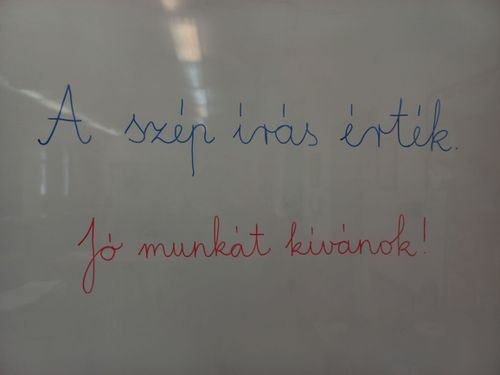 A szép írás érték.
Jó munkát kívánok!